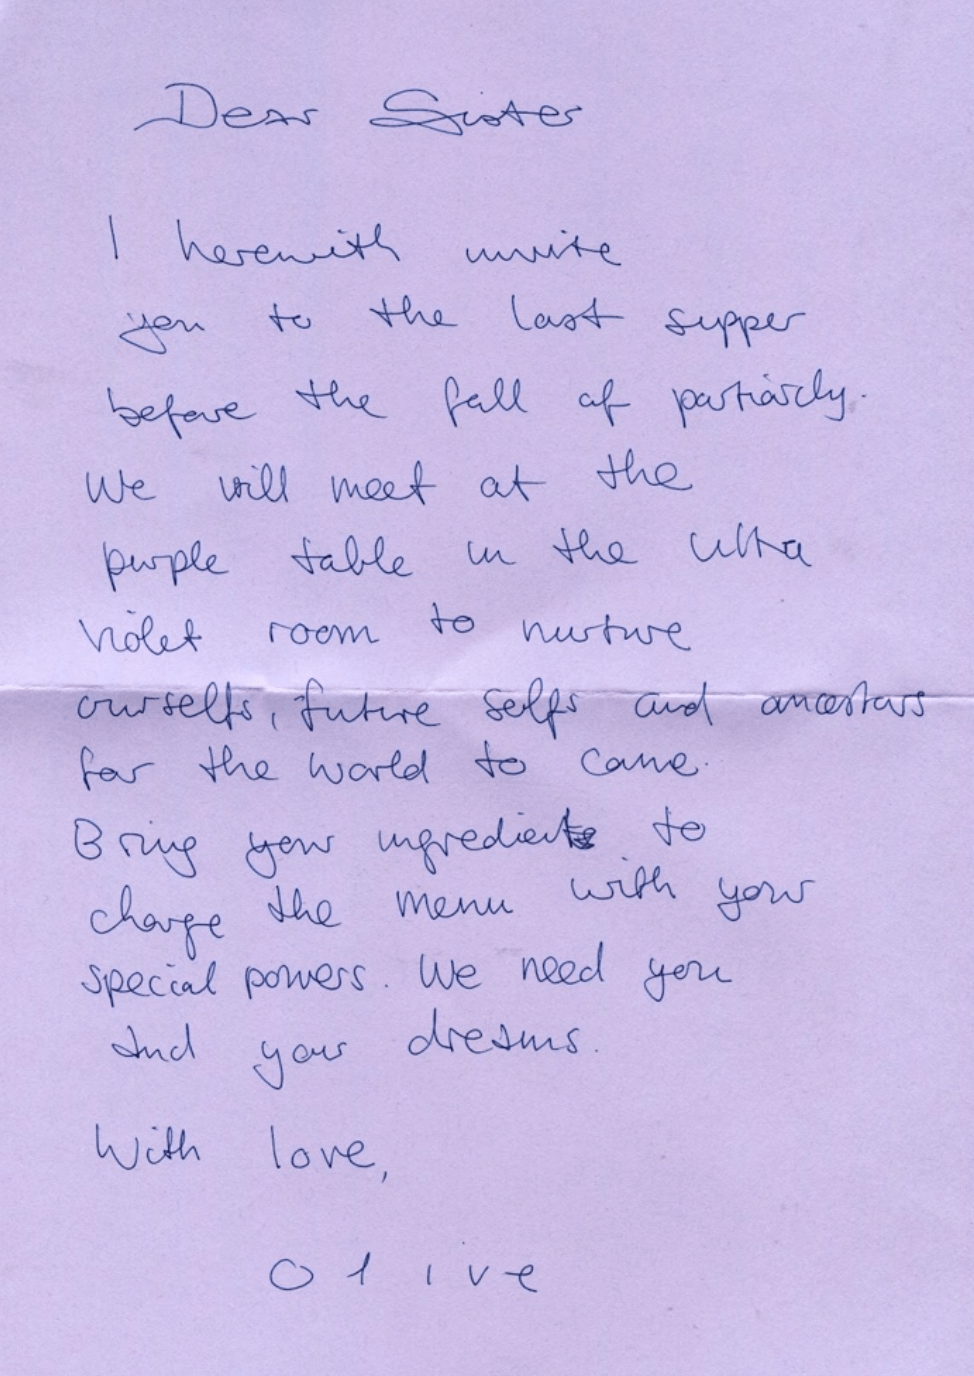 Dear Sister
I herewith invite
you to the last supper
before the fall of partiarchy.
We will meet at the
purple table in the ultra
violet room to nurture
ourselfs, future selfs and ancestors
for the world to come.
Bring your ingredients to
charge the menu with your
special powers. We need you
and your dreams.
With love,
Olive